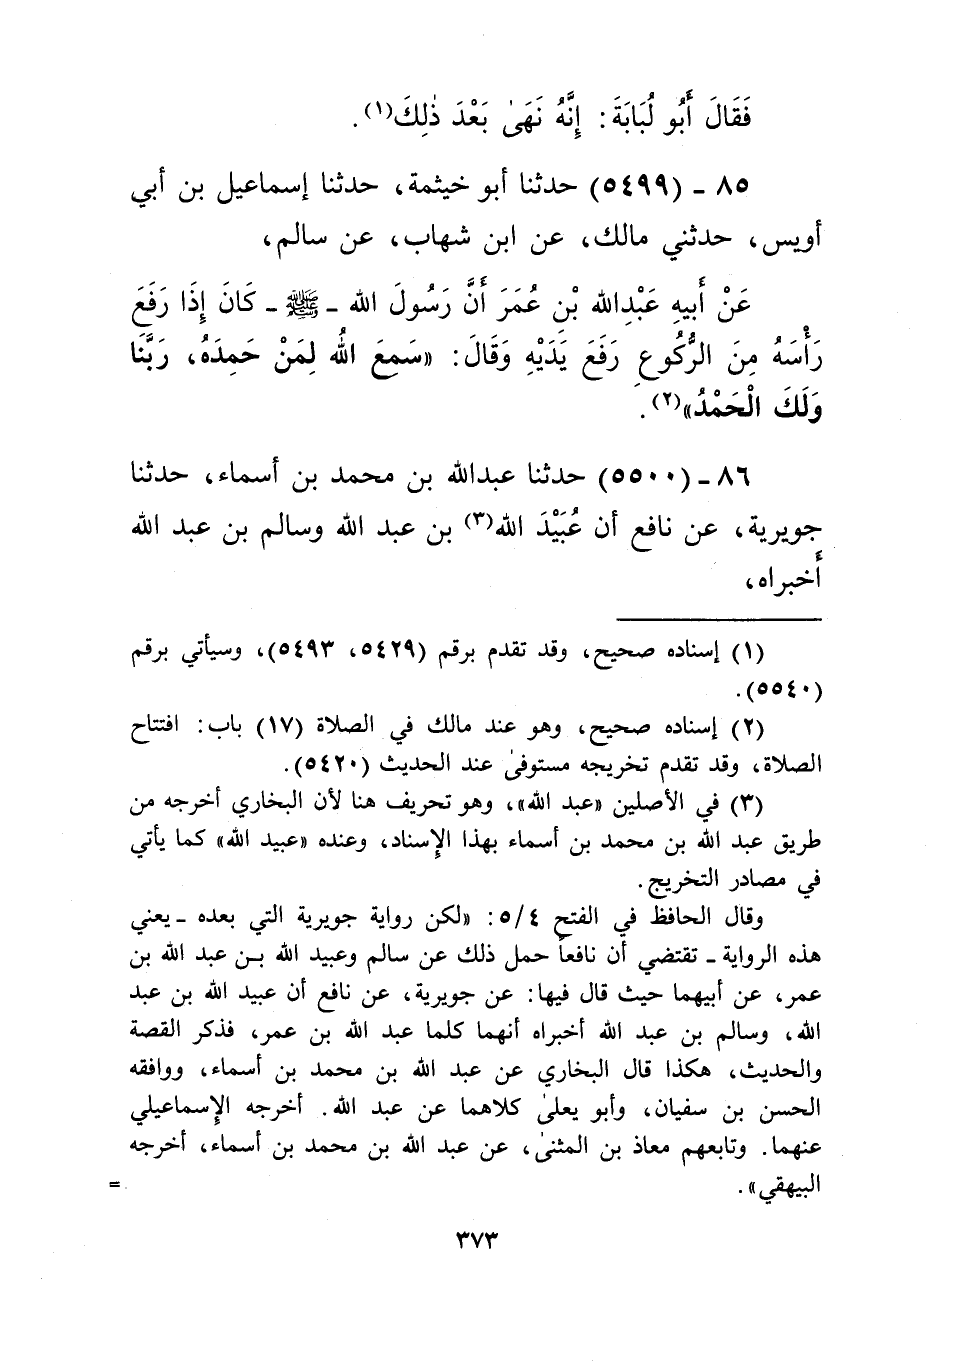 فَقَالَ أَبُو لُبَابَةَ: إِنَّهُ نَهَىٰ بَعْدَ ذٰلِكَ(١).
٨٥ - (٥٤٩٩) حدثنا أبو خيثمة، حدثنا إسماعيل بن أبي
أويس، حدثني مالك، عن ابن شهاب، عن سالم،
عَنْ أَبِيهِ عَبْدِالله بْنِ عُمَرَ أَنَّ رَسُولَ الله - ﷺ - كَانَ إِذَا رَفَعَ
رَأْسَهُ مِنَ الرُّكُوعِ رَفَعَ يَدَيْهِ وَقَالَ: «سَمِعَ اللهُ لِمَنْ حَمِدَهُ، رَبَّنَا
وَلَكَ الْحَمْدُ»(٢).
٨٦ - (٥٥٠٠) حدثنا عبدالله بن محمد بن أسماء، حدثنا
جويرية، عن نافع أن عُبَيْدَ الله(٣) بن عبد الله وسالم بن عبد الله
أَخبراه،
(١) إسناده صحيح، وقد تقدم برقم (٥٤٢٩، ٥٤٩٣)، وسيأتي برقم
(٥٥٤٠).
(٢) إسناده صحيح، وهو عند مالك في الصلاة (١٧) باب: افتتاح
الصلاة، وقد تقدم تخريجه مستوفىٰ عند الحديث (٥٤٢٠).
(٣) في الأصلين «عبد الله»، وهو تحريف هنا لأن البخاري أخرجه من
طريق عبد الله بن محمد بن أسماء بهذا الإسناد، وعنده «عبيد الله» كما يأتي
في مصادر التخريج.
وقال الحافظ في الفتح ٥/٤: «لكن رواية جويرية التي بعده - يعني
هذه الرواية - تقتضي أن نافعاً حمل ذلك عن سالم وعبيد الله بن عبد الله بن
عمر، عن أبيهما حيث قال فيها: عن جويرية، عن نافع أن عبيد الله بن عبد
الله، وسالم بن عبد الله أخبراه أنهما كلما عبد الله بن عمر، فذكر القصة
والحديث، هكذا قال البخاري عن عبد الله بن محمد بن أسماء، ووافقه
الحسن بن سفيان، وأبو يعلىٰ كلاهما عن عبد الله. أخرجه الإسماعيلي
عنهما. وتابعهم معاذ بن المثنىٰ، عن عبد الله بن محمد بن أسماء، أخرجه
البيهقي». =
٣٧٣